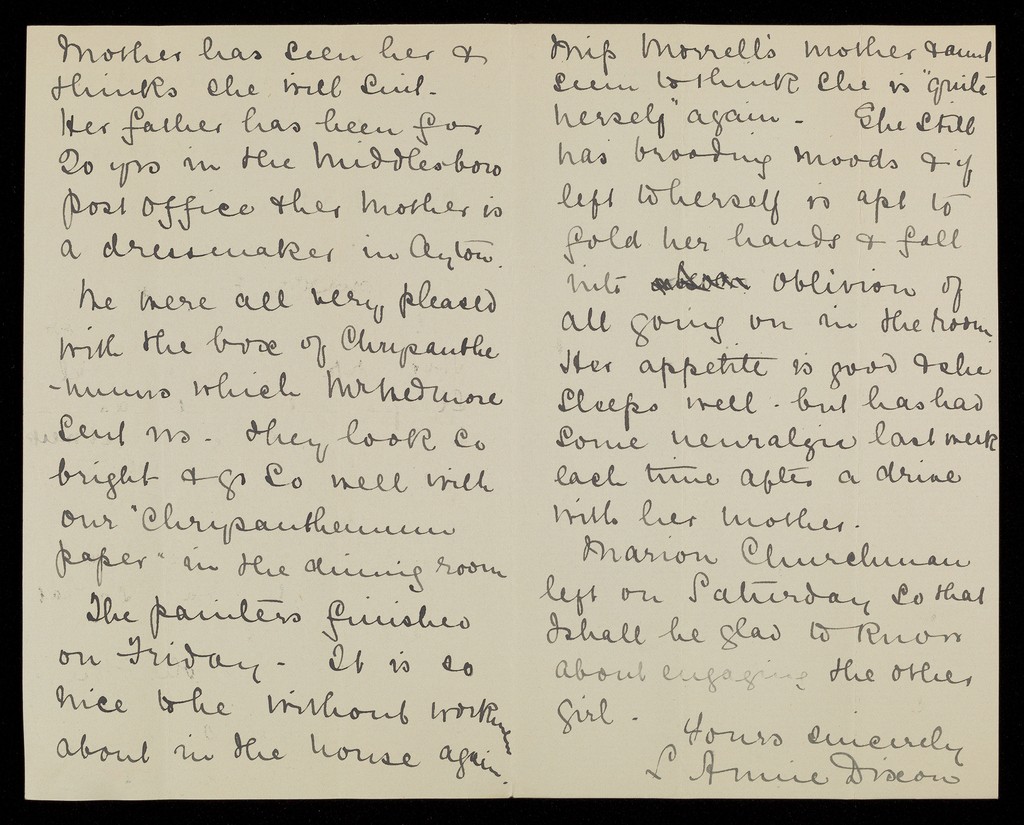 Mother has seen her &
thinks she will suit.
Her father has been for
20 yrs in the Middlesboro
post office & her mother is
a dressmaker in Ayton.
We were all very pleased
with the box of Chrysanthe
-mums which Mr Wedmore
sent us. They look so
bright & go so well with
our "Chrysanthemum
paper" in the dining room
The painters finished
on Friday - It is so
nice to be without workmen
about in the house again.
Miss Morrell's mother & aunt
seem to think she is "quite
herself" again - She still
has brooding moods & if
left to herself is apt to
fold her hands & fall
into oblivion of
all going on in the room.
Her appetite is good & she
sleeps well - but has had
some neuralgia last week
each time after a drive
with her mother.
Marion Churchman
left on Saturday so that
I shall be glad to know
about engaging the other
girl -
Yours sincerely
L Annie Dixon